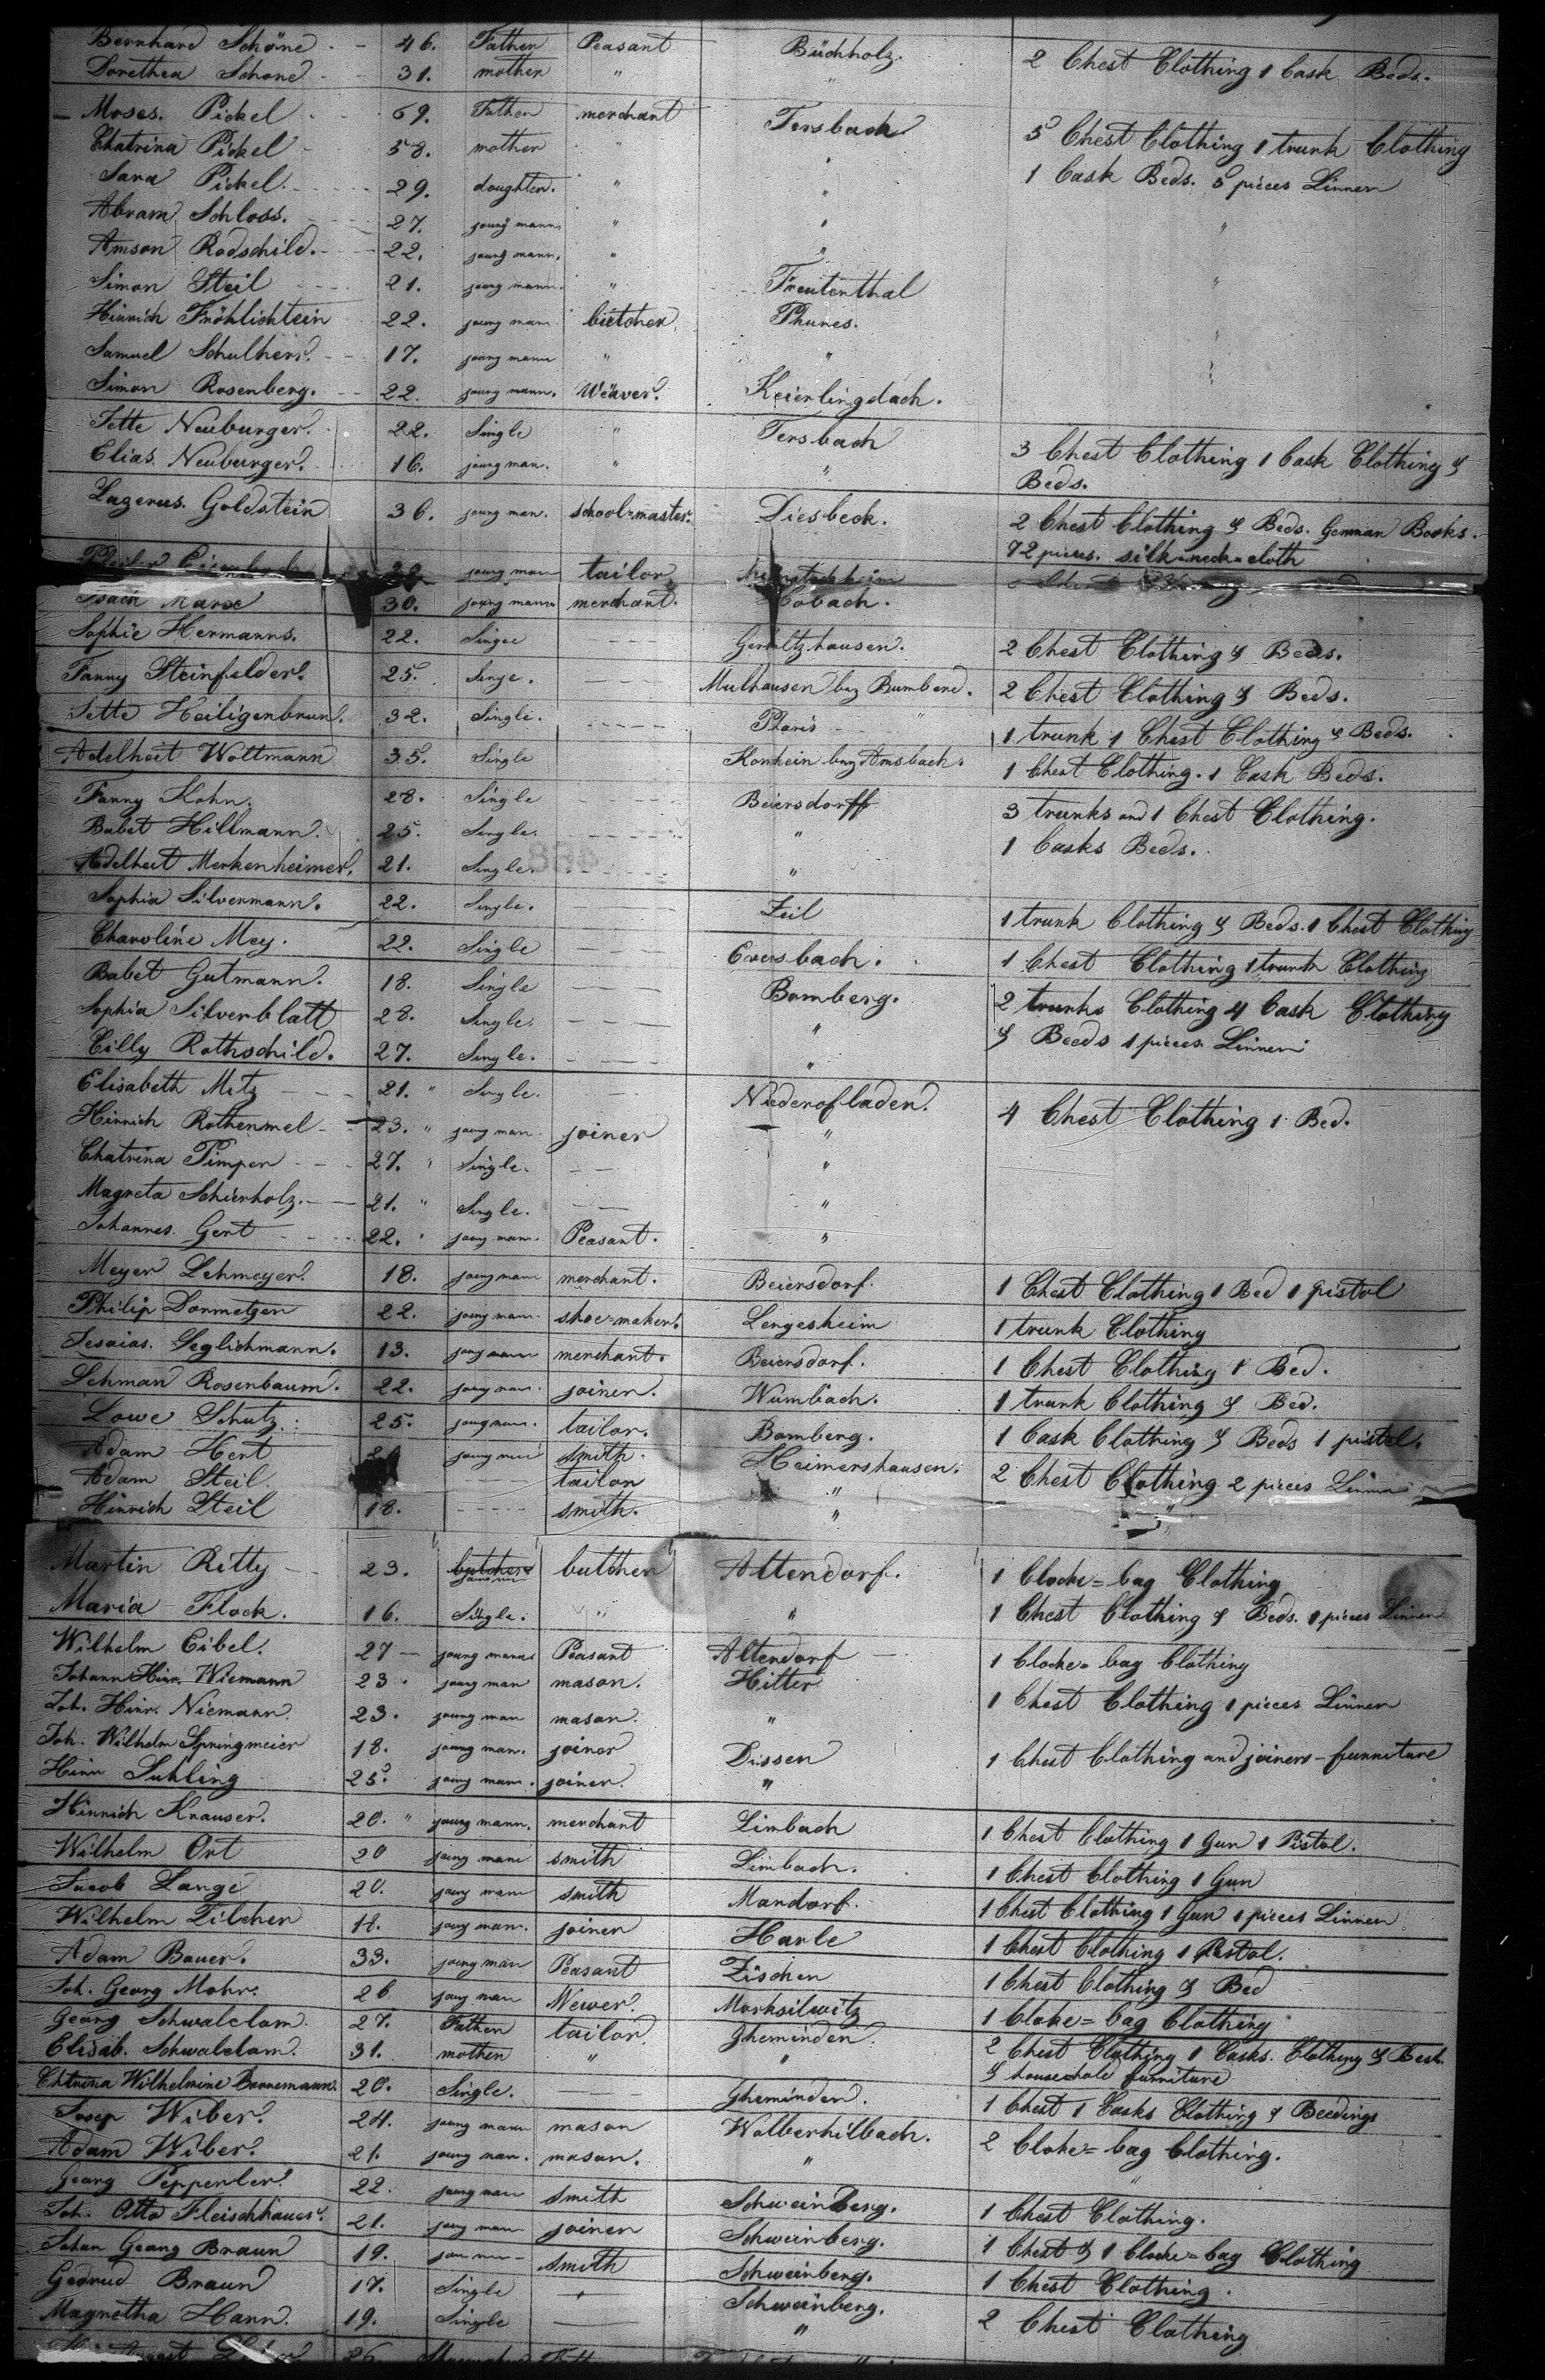 Bernhard Schöne - 46. Father Peasant Büchholz. 2 Chest Clothing 1 Cask Beds.
Dorethea Schone - 31. mother " "
Moses. Pickel 69. Father merchant Tersbach 5 Chest Clothing 1 trunk Clothing
Chatrina Pickel - 58. mother " " 1 Cask Beds. 5 pieces Linnen
Sara Pickel. 29. doughter. " "
Abram Schloss. 27. joung mann " "
Amson Rodschild. 22. joung mann. " "
Simon Steil 21. joung mann. " Treutenthal
Hinrich Fröhlichtein 22. joung man butcher Thunes.
Samuel Schulherr. 17. joung mann " "
Simon Rosenberg. 22. joung mann. Weaver. Keierlingdach.
Jette Neuburger. 22. Single " Tersbach 3 Chest Clothing 1 Cask Clothing &
Elias. Neuburger. 16. joung man. " " Beds.
Lazerus. Goldstein 36. joung man. school=master. Diesbeck. 2 Chest Clothing & Beds. German Books.
72 pieces. silk=neck=cloth
joung man tailor
Isack Marx 30. joung mann merchant. Hobach.
Sophie Hermanns. 22. Singel Geroltzhausen. 2 Chest Clothing & Beds.
Fanny Steinfelder. 25. Singe. Mulhausen bey Bumberd. 2 Chest Clothing & Beds.
Jette Heiligenbrun. 32. Single. Ploris " 1 trunk 1 Chest Clothing & Beds.
Adelheit Wottmann 35. Single Konhein bey Amsbach. 1 Chest Clothing. 1 Cask Beds.
Fanny Kohn. 28. Single Beiersdorff 3 trunks and 1 Chest Clothing.
Babet Hillmann. 25. Single. " 1 Casks Beds.
Adelheit Merkenheimer. 21. Single. "
Sophia Silvermann. 22. Single. Zeil 1 trunk Clothing & Beds. 1 Chest Clothing
Charoline Mey. 22. Single Eversbach. 1 Chest Clothing 1 trunk Clothing
Babet Gutmann. 18. Single Bomberg. 2 trunks Clothing 4 Cask Clothing
Sophia Silverblatt 28. Single. " & Beeds 1 pieces Linnen
Cilly Rothschild. 27. Single. "
Elisabeth Metz 21. " Single. Niederofladen. 4 Chest Clothing 1 Bed.
Hinrich Rothermel 23. " joung man joiner "
Chatrina Pimper 27. " Single. "
Magreta Schierholz. 21. " Single. "
Johannes. Gert 22. " joung man. Peasant. "
Meyer Lehmeyer. 18. joung man merchant. Beiersdorf. 1 Chest Clothing 1 Bed 1 pistol
Philip Dormetzen 22. joung man shoe=maker. Lengesheim 1 trunk Clothing
Jesaias. Seglichmann. 13. joung mann merchant. Beiersdorf. 1 Chest Clothing 1 Bed.
Lehman Rosenbaum. 22. joung man. joiner. Wumbach. 1 trunk Clothing & Bed.
Lowe Schutz. 25. joung man. tailor. Bomberg. 1 Cask Clothing & Beds 1 pistol.
Adam Hert joung man smith. Heimershausen. 2 Chest Clothing 2 pieces Linnen
Adam Steil. tailor "
Hinrich Steil 18. smith. "
Martin Ritty 23. joung man butcher Altendorf. 1 Clocke=bag Clothing
Maria Flock. 16. Single. " " 1 Chest Clothing & Beds. 1 pieces Linnen
Wilhelm Eibel. 27 joung mann Peasant Altendorf 1 Clocke=bag Clothing
Johann Hinr. Wiemann 23. joung man mason. Hitter 1 Chest Clothing 1 pieces Linnen
Joh. Hinr. Niemann. 23. joung man mason. "
Joh. Wilhelm Springmeier 18. joung man. joiner Dissen 1 Chest Clothing and joiners-furniture
Hinr Suhling 25. joung mann. joiner. "
Hinrich Krauser. 20. " joung mann. merchant Limbach 1 Chest Clothing 1 Gun 1 Pistol.
Wilhelm Ort 20 joung mann smith Limbach. 1 Chest Clothing 1 Gun
Jacob Lange 20. joung mann smith Mandorf. 1 Chest Clothing 1 Gun 1 pieces Linnen
Wilhelm Tilcher 18. joung man. joiner Harle 1 Chest Clothing 1 Pistol.
Adam Bauer. 33. joung man Peasant Zischen 1 Chest Clothing & Bed
Joh. Georg Mohr. 26 joung man Wewer. Morksilwitz 1 Cloke=bag Clothing
Georg Schwalclam. 27. Father tailor Gheminden. 2 Chest Clothing 1 Casks. Clothing & Beds.
Elisab. Schwalclam. 31. mother " " & household furniture
Chtrina Wilhelmine Bornemann. 20. Single. Gheminden. 1 Chest 1 Casks Clothing & Beedings
Josep Wiber. 24. joung mann mason Wolberhilbach. 2 Cloke=bag Clothing.
Adam Wiber. 21. joung man. mason. " "
Georg Pepperler. 22. joung man smith Schweinberg. 1 Chest Clothing.
Joh. Otto Fleischhauer. 21. joung man joiner Schweinberg. 1 Chest & 1 Clocke=bag Clothing
Johan Georg Braun 19. smith Schweinberg. 1 Chest Clothing.
Gedrud Braun 17. Single " Schweinberg. 2 Chest Clothing
Magretha Hann. 19. Single "
26.